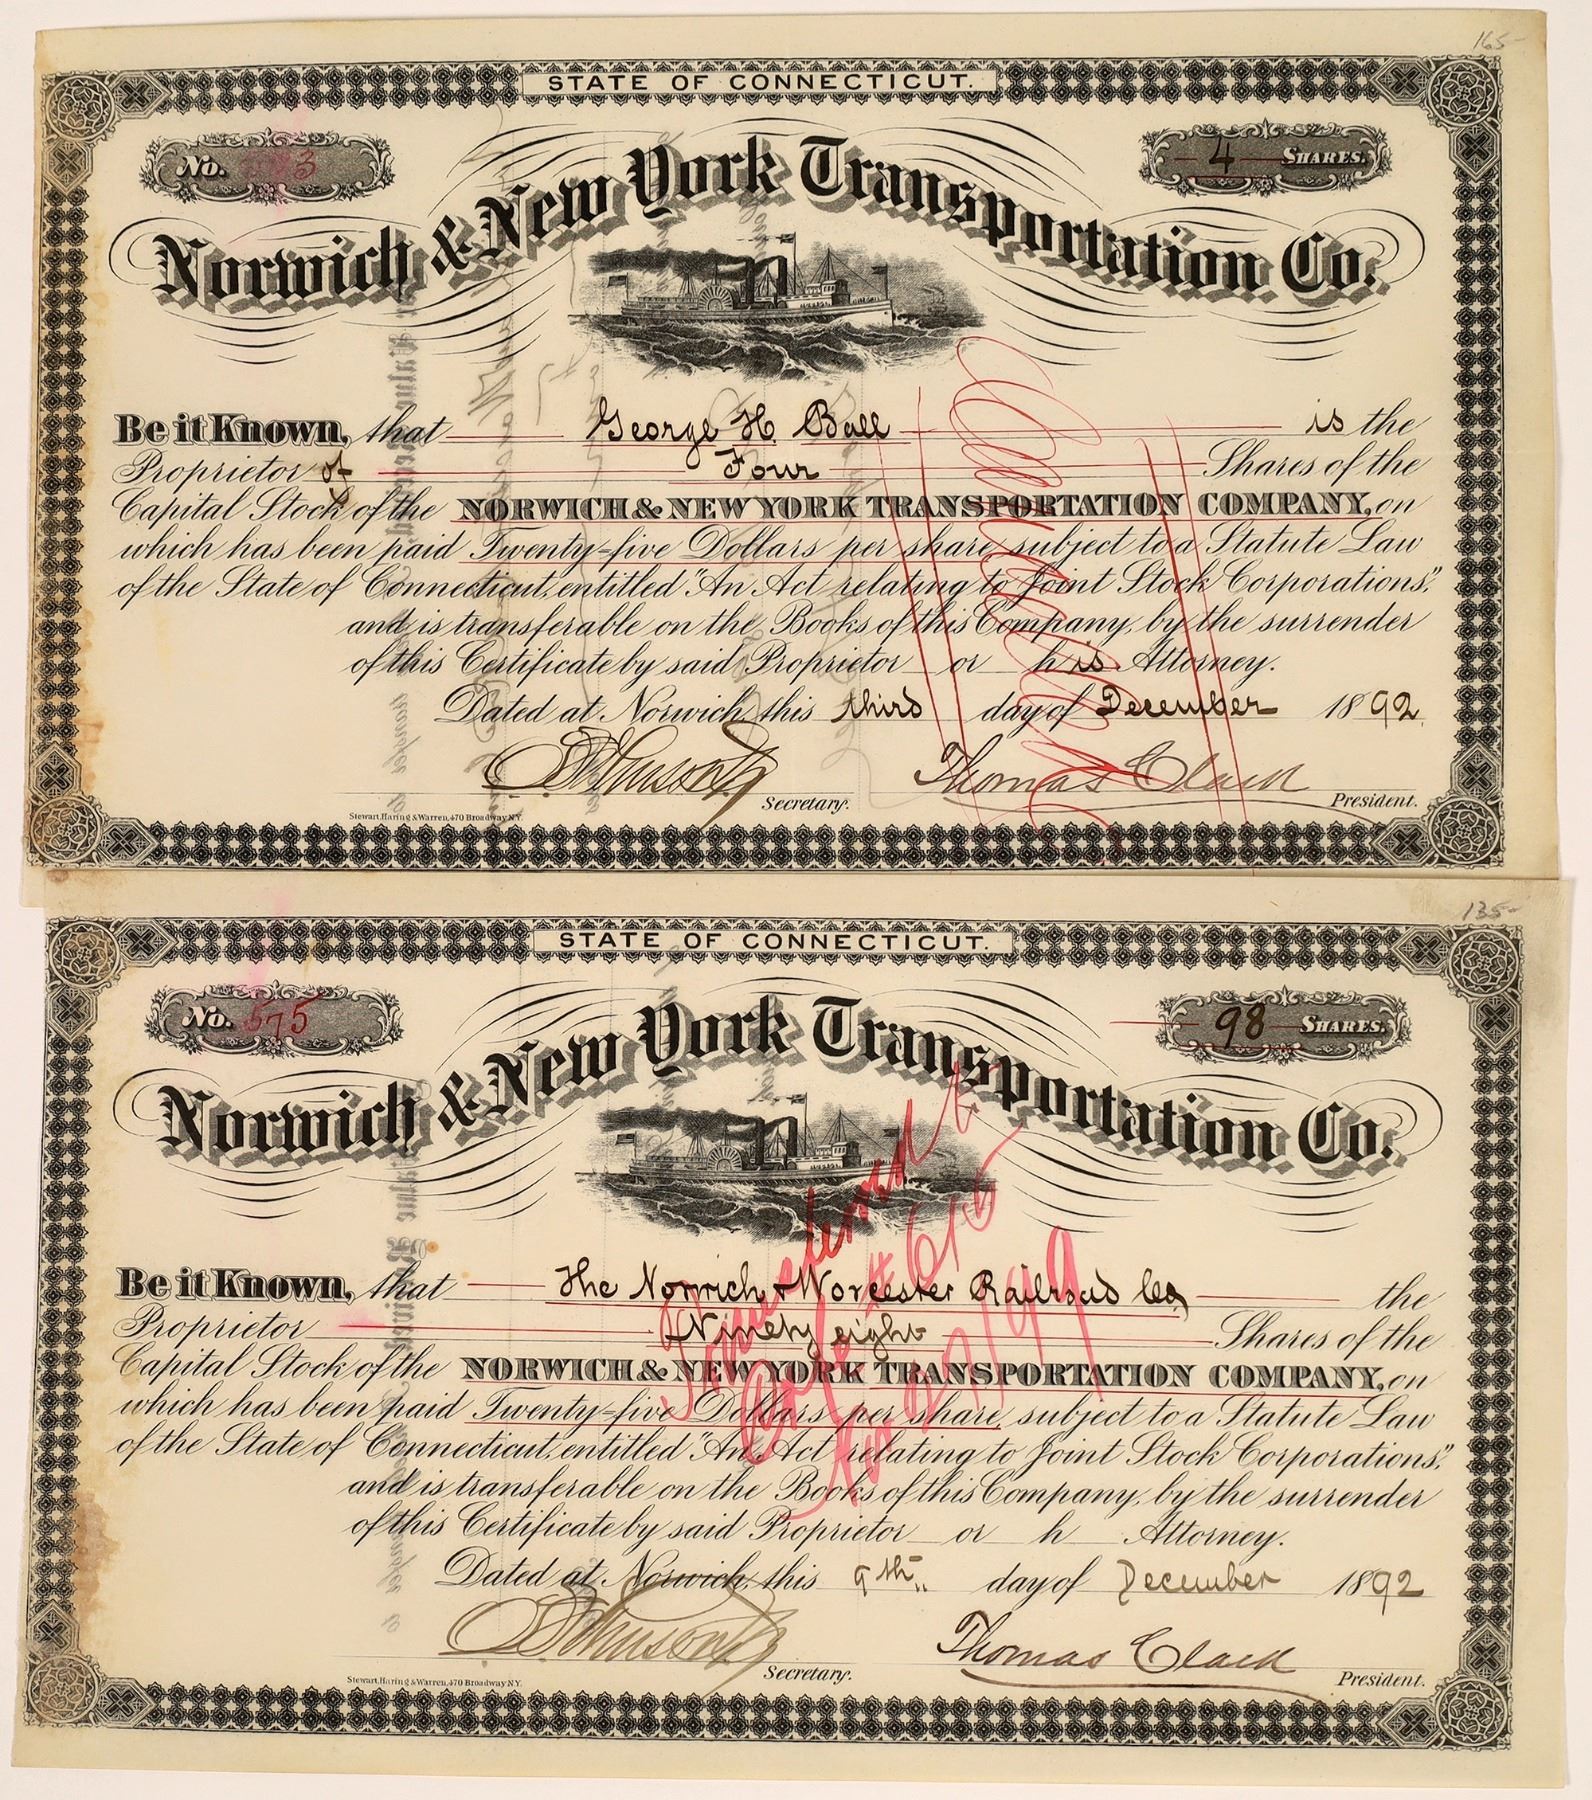 165-
STATE OF CONNECTICUT.
No.
4 SHARES.
Norwich & New York Transportation Co.
Be it Known, that George H. Ball is the
Proprietor of Four Shares of the
Capital Stock of the NORWICH & NEW YORK TRANSPORTATION COMPANY, on
which has been paid Twenty=five Dollars per share, subject to a Statute Law
of the State of Connecticut, entitled "An Act relating to Joint Stock Corporations",
and is transferable on the Books of this Company, by the surrender
of this Certificate by said Proprietor or his Attorney.
Dated at Norwich, this third day of December 1892.
Secretary.
Thomas Clark President.
Stewart, Haring & Warren, 470 Broadway N.Y.
135-
STATE OF CONNECTICUT.
No. 575
98 SHARES.
Norwich & New York Transportation Co.
Be it Known, that The Norwich & Worcester Railroad Co, the
Proprietor Ninety eight Shares of the
Capital Stock of the NORWICH & NEW YORK TRANSPORTATION COMPANY, on
which has been paid Twenty=five Dollars per share, subject to a Statute Law
of the State of Connecticut, entitled "An Act relating to Joint Stock Corporations",
and is transferable on the Books of this Company, by the surrender
of this Certificate by said Proprietor or h Attorney.
Dated at Norwich, this 9th day of December 1892
Secretary.
Thomas Clark President.
Stewart, Haring & Warren, 470 Broadway N.Y.